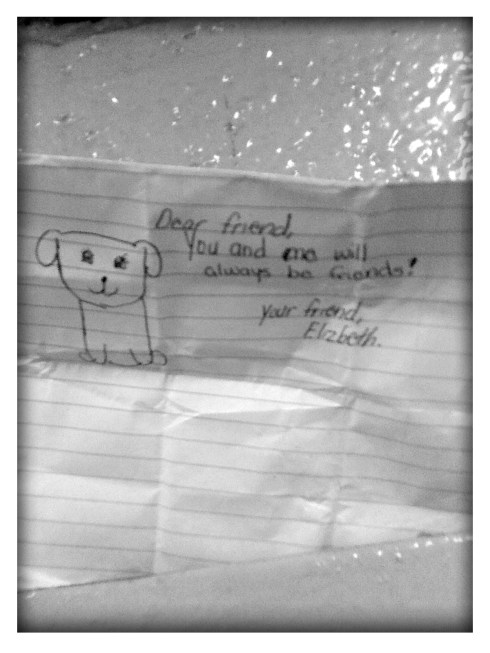 Dear friend,
You and me will
always be friends!
your friend,
Elizbeth.